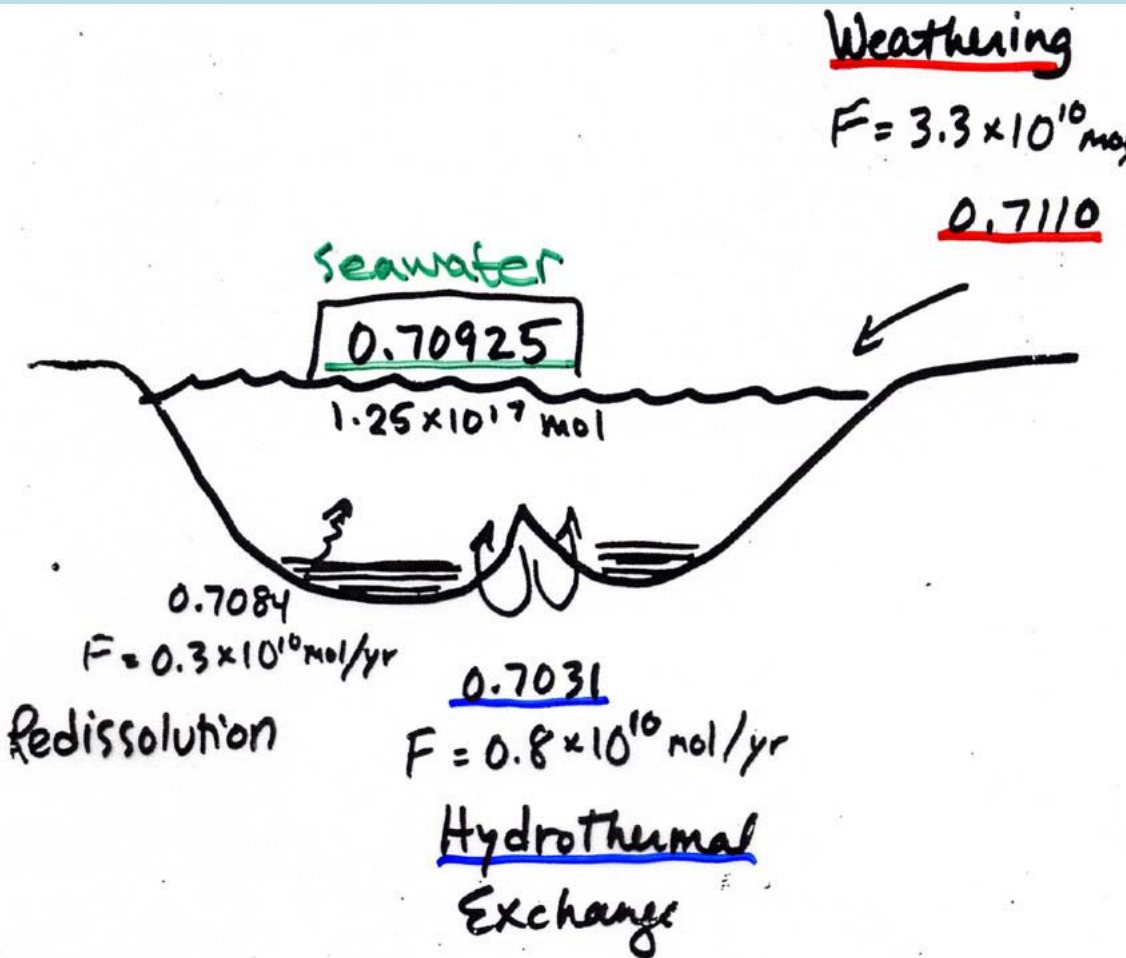 Weathering
F = 3.3 × 10¹⁰
0.7110
seawater
0.70925
1.25 × 10¹⁷ mol
0.7084
F = 0.3 × 10¹⁰ mol/yr
Redissolution
0.7031
F = 0.8 × 10¹⁰ mol/yr
Hydrothermal
Exchange